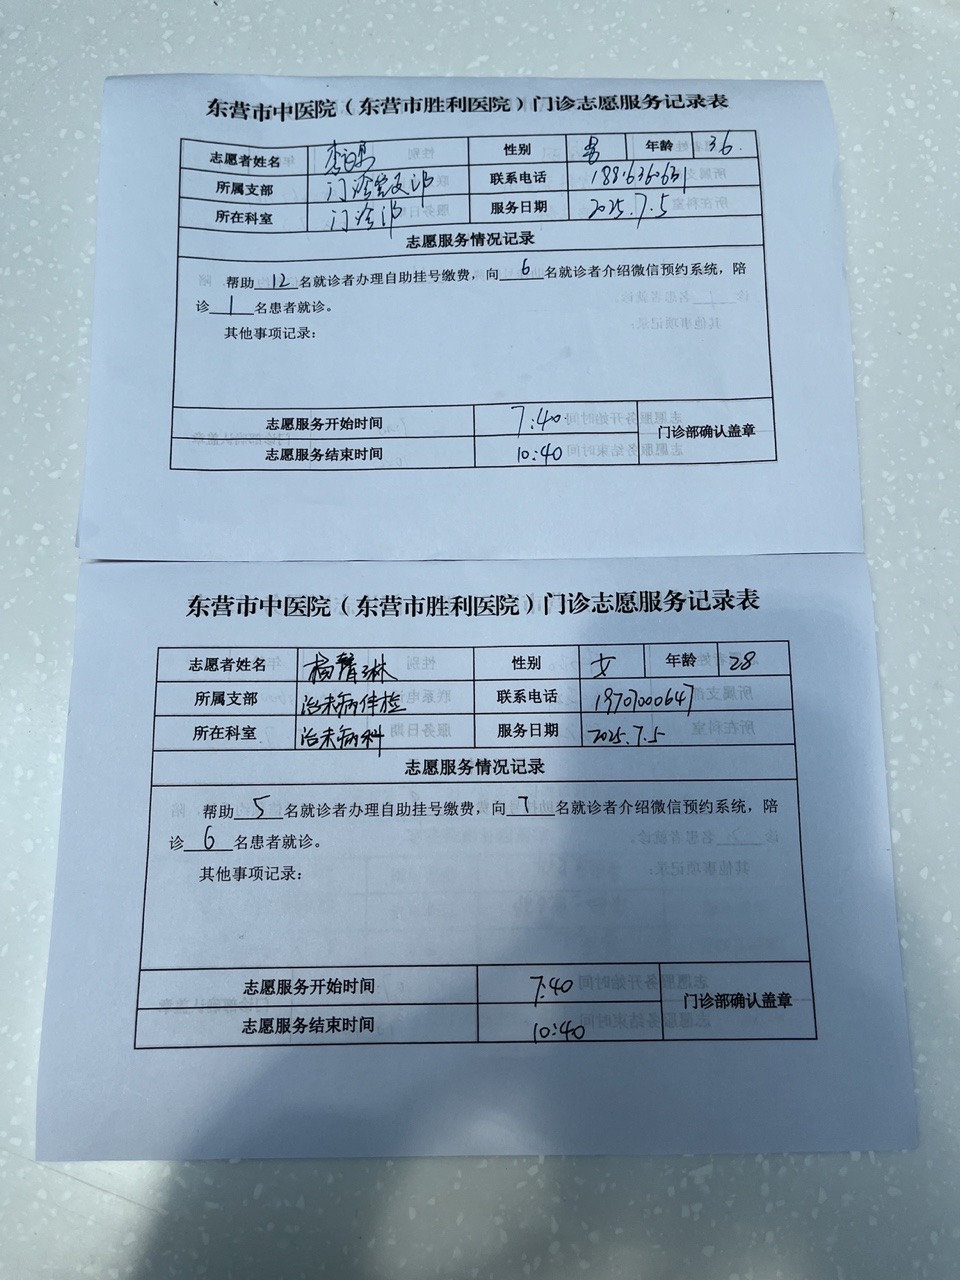 东营市中医院（东营市胜利医院）门诊志愿服务记录表
志愿者姓名 李 性别 男 年龄 36.
所属支部 门诊党支部 联系电话
所在科室 门诊部 服务日期 2025.7.5
志愿服务情况记录
帮助12名就诊者办理自助挂号缴费，向6名就诊者介绍微信预约系统，陪
诊1名患者就诊。
其他事项记录：
志愿服务开始时间 7:40 门诊部确认盖章
志愿服务结束时间 10:40
东营市中医院（东营市胜利医院）门诊志愿服务记录表
志愿者姓名 杨 琳 性别 女 年龄 28
所属支部 治未病体检 联系电话 19707000647
所在科室 治未病科 服务日期 2025.7.5
志愿服务情况记录
帮助5名就诊者办理自助挂号缴费，向7名就诊者介绍微信预约系统，陪
诊6名患者就诊。
其他事项记录：
志愿服务开始时间 7:40 门诊部确认盖章
志愿服务结束时间 10:40